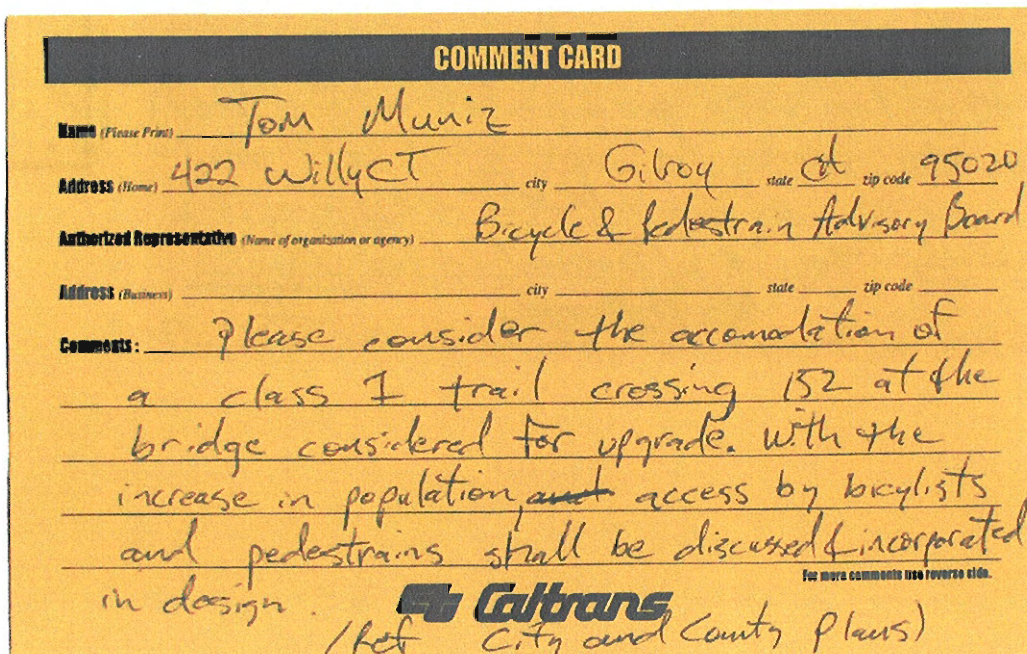 COMMENT CARD
Name (Please Print) Tom Muniz
Address (Home) 422 Willy CT city Gilroy state CA zip code 95020
Authorized Representative (Name of organization or agency) Bicycle & Pedestrain Advisory Board
Address (Business) city state zip code
Comments: Please consider the accomodation of
a class I trail crossing 152 at the
bridge considered for upgrade. With the
increase in population, and access by bicylists
and pedestrains shall be discussed & incorporated
For more comments use reverse side.
in design. Caltrans
(Ref City and County Plans)